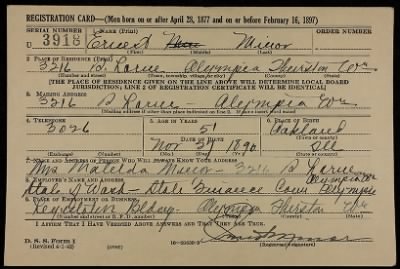 REGISTRATION CARD—(Men born on or after April 28, 1877 and on or before February 16, 1897)
SERIAL NUMBER 1. NAME (Print) ORDER NUMBER
U 3918 Ernest Minor
(First) (Middle) (Last)
2. PLACE OF RESIDENCE (Print)
3216 Olympia Thurston Wn
(Number and street) (Town, township, village, or city) (County) (State)
[THE PLACE OF RESIDENCE GIVEN ON THE LINE ABOVE WILL DETERMINE LOCAL BOARD
JURISDICTION; LINE 2 OF REGISTRATION CERTIFICATE WILL BE IDENTICAL]
3. MAILING ADDRESS
3216 Olympia Wn
(Mailing address if other than place indicated on line 2. If same insert word same)
4. TELEPHONE 5. AGE IN YEARS 6. PLACE OF BIRTH
3026 51 Oakland
DATE OF BIRTH
Nov 1890 Ill
(Exchange) (Number) (Mo.) (Day) (Yr.) (Town or county) (State or country)
7. NAME AND ADDRESS OF PERSON WHO WILL ALWAYS KNOW YOUR ADDRESS
Mrs Matilda Minor - 3216 Olympia Wn
8. EMPLOYER'S NAME AND ADDRESS
State of Wash - State Finance Com Olympia
9. PLACE OF EMPLOYMENT OR BUSINESS
Bldg - Olympia Thurston Wn
(Number and street or R. F. D. number) (Town) (County) (State)
I AFFIRM THAT I HAVE VERIFIED ABOVE ANSWERS AND THAT THEY ARE TRUE.
D. S. S. Form 1
(Revised 4-1-42) (over) (Registrant's signature)